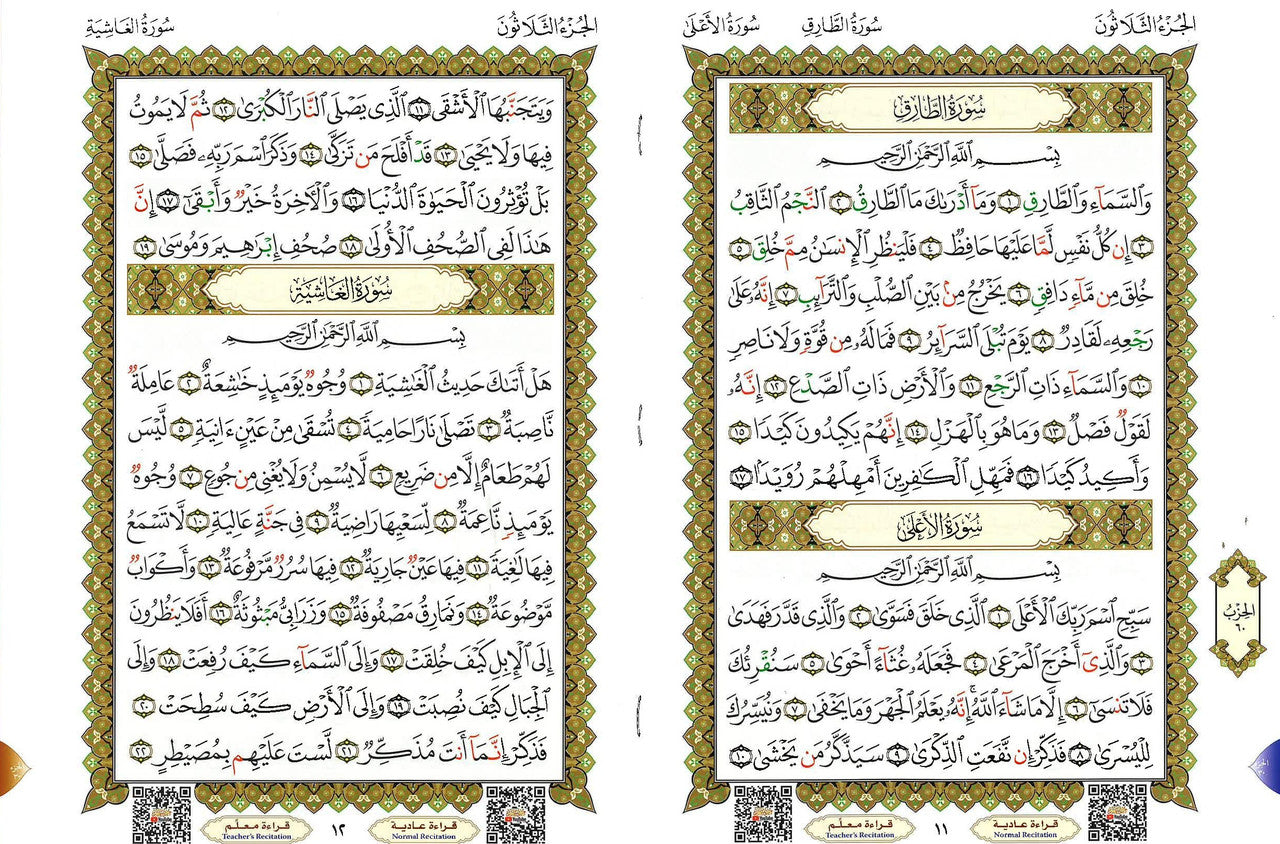 الجُزْءُ الثَّلَاثُونَ
سُورَةُ الطَّارِقِ
سُورَةُ الأَعْلَىٰ
سُورَةُ الطَّارِقِ
بِسْمِ ٱللَّهِ ٱلرَّحْمَٰنِ ٱلرَّحِيمِ
وَٱلسَّمَآءِ وَٱلطَّارِقِ ١ وَمَآ أَدْرَىٰكَ مَا ٱلطَّارِقُ ٢ ٱلنَّجْمُ ٱلثَّاقِبُ
٣ إِن كُلُّ نَفْسٍ لَّمَّا عَلَيْهَا حَافِظٌ ٤ فَلْيَنظُرِ ٱلْإِنسَٰنُ مِمَّ خُلِقَ ٥
خُلِقَ مِن مَّآءٍ دَافِقٍ ٦ يَخْرُجُ مِنۢ بَيْنِ ٱلصُّلْبِ وَٱلتَّرَآئِبِ ٧ إِنَّهُۥ عَلَىٰ
رَجْعِهِۦ لَقَادِرٌ ٨ يَوْمَ تُبْلَى ٱلسَّرَآئِرُ ٩ فَمَا لَهُۥ مِن قُوَّةٍ وَلَا نَاصِرٍ
١٠ وَٱلسَّمَآءِ ذَاتِ ٱلرَّجْعِ ١١ وَٱلْأَرْضِ ذَاتِ ٱلصَّدْعِ ١٢ إِنَّهُۥ
لَقَوْلٌ فَصْلٌ ١٣ وَمَا هُوَ بِٱلْهَزْلِ ١٤ إِنَّهُمْ يَكِيدُونَ كَيْدًا ١٥
وَأَكِيدُ كَيْدًا ١٦ فَمَهِّلِ ٱلْكَٰفِرِينَ أَمْهِلْهُمْ رُوَيْدًۢا ١٧
سُورَةُ الأَعْلَىٰ
بِسْمِ ٱللَّهِ ٱلرَّحْمَٰنِ ٱلرَّحِيمِ
سَبِّحِ ٱسْمَ رَبِّكَ ٱلْأَعْلَى ١ ٱلَّذِى خَلَقَ فَسَوَّىٰ ٢ وَٱلَّذِى قَدَّرَ فَهَدَىٰ
٣ وَٱلَّذِىٓ أَخْرَجَ ٱلْمَرْعَىٰ ٤ فَجَعَلَهُۥ غُثَآءً أَحْوَىٰ ٥ سَنُقْرِئُكَ
فَلَا تَنسَىٰٓ ٦ إِلَّا مَا شَآءَ ٱللَّهُ إِنَّهُۥ يَعْلَمُ ٱلْجَهْرَ وَمَا يَخْفَىٰ ٧ وَنُيَسِّرُكَ
لِلْيُسْرَىٰ ٨ فَذَكِّرْ إِن نَّفَعَتِ ٱلذِّكْرَىٰ ٩ سَيَذَّكَّرُ مَن يَخْشَىٰ ١٠
الحِزْبُ
٦٠
قراءة عادية
Normal Recitation
١١
قراءة معلّم
Teacher's Recitation
الجُزْءُ الثَّلَاثُونَ
سُورَةُ الغَاشِيَةِ
وَيَتَجَنَّبُهَا ٱلْأَشْقَى ١١ ٱلَّذِى يَصْلَى ٱلنَّارَ ٱلْكُبْرَىٰ ١٢ ثُمَّ لَا يَمُوتُ
فِيهَا وَلَا يَحْيَىٰ ١٣ قَدْ أَفْلَحَ مَن تَزَكَّىٰ ١٤ وَذَكَرَ ٱسْمَ رَبِّهِۦ فَصَلَّىٰ ١٥
بَلْ تُؤْثِرُونَ ٱلْحَيَوٰةَ ٱلدُّنْيَا ١٦ وَٱلْءَاخِرَةُ خَيْرٌ وَأَبْقَىٰٓ ١٧ إِنَّ
هَٰذَا لَفِى ٱلصُّحُفِ ٱلْأُولَىٰ ١٨ صُحُفِ إِبْرَٰهِيمَ وَمُوسَىٰ ١٩
سُورَةُ الغَاشِيَةِ
بِسْمِ ٱللَّهِ ٱلرَّحْمَٰنِ ٱلرَّحِيمِ
هَلْ أَتَىٰكَ حَدِيثُ ٱلْغَٰشِيَةِ ١ وُجُوهٌ يَوْمَئِذٍ خَٰشِعَةٌ ٢ عَامِلَةٌ
نَّاصِبَةٌ ٣ تَصْلَىٰ نَارًا حَامِيَةً ٤ تُسْقَىٰ مِنْ عَيْنٍ ءَانِيَةٍ ٥ لَّيْسَ
لَهُمْ طَعَامٌ إِلَّا مِن ضَرِيعٍ ٦ لَّا يُسْمِنُ وَلَا يُغْنِى مِن جُوعٍ ٧ وُجُوهٌ
يَوْمَئِذٍ نَّاعِمَةٌ ٨ لِّسَعْيِهَا رَاضِيَةٌ ٩ فِى جَنَّةٍ عَالِيَةٍ ١٠ لَّا تَسْمَعُ
فِيهَا لَٰغِيَةً ١١ فِيهَا عَيْنٌ جَارِيَةٌ ١٢ فِيهَا سُرُرٌ مَّرْفُوعَةٌ ١٣ وَأَكْوَابٌ
مَّوْضُوعَةٌ ١٤ وَنَمَارِقُ مَصْفُوفَةٌ ١٥ وَزَرَابِىُّ مَبْثُوثَةٌ ١٦ أَفَلَا يَنظُرُونَ
إِلَى ٱلْإِبِلِ كَيْفَ خُلِقَتْ ١٧ وَإِلَى ٱلسَّمَآءِ كَيْفَ رُفِعَتْ ١٨ وَإِلَى
ٱلْجِبَالِ كَيْفَ نُصِبَتْ ١٩ وَإِلَى ٱلْأَرْضِ كَيْفَ سُطِحَتْ ٢٠
فَذَكِّرْ إِنَّمَآ أَنتَ مُذَكِّرٌ ٢١ لَّسْتَ عَلَيْهِم بِمُصَيْطِرٍ ٢٢
قراءة عادية
Normal Recitation
١٢
قراءة معلّم
Teacher's Recitation